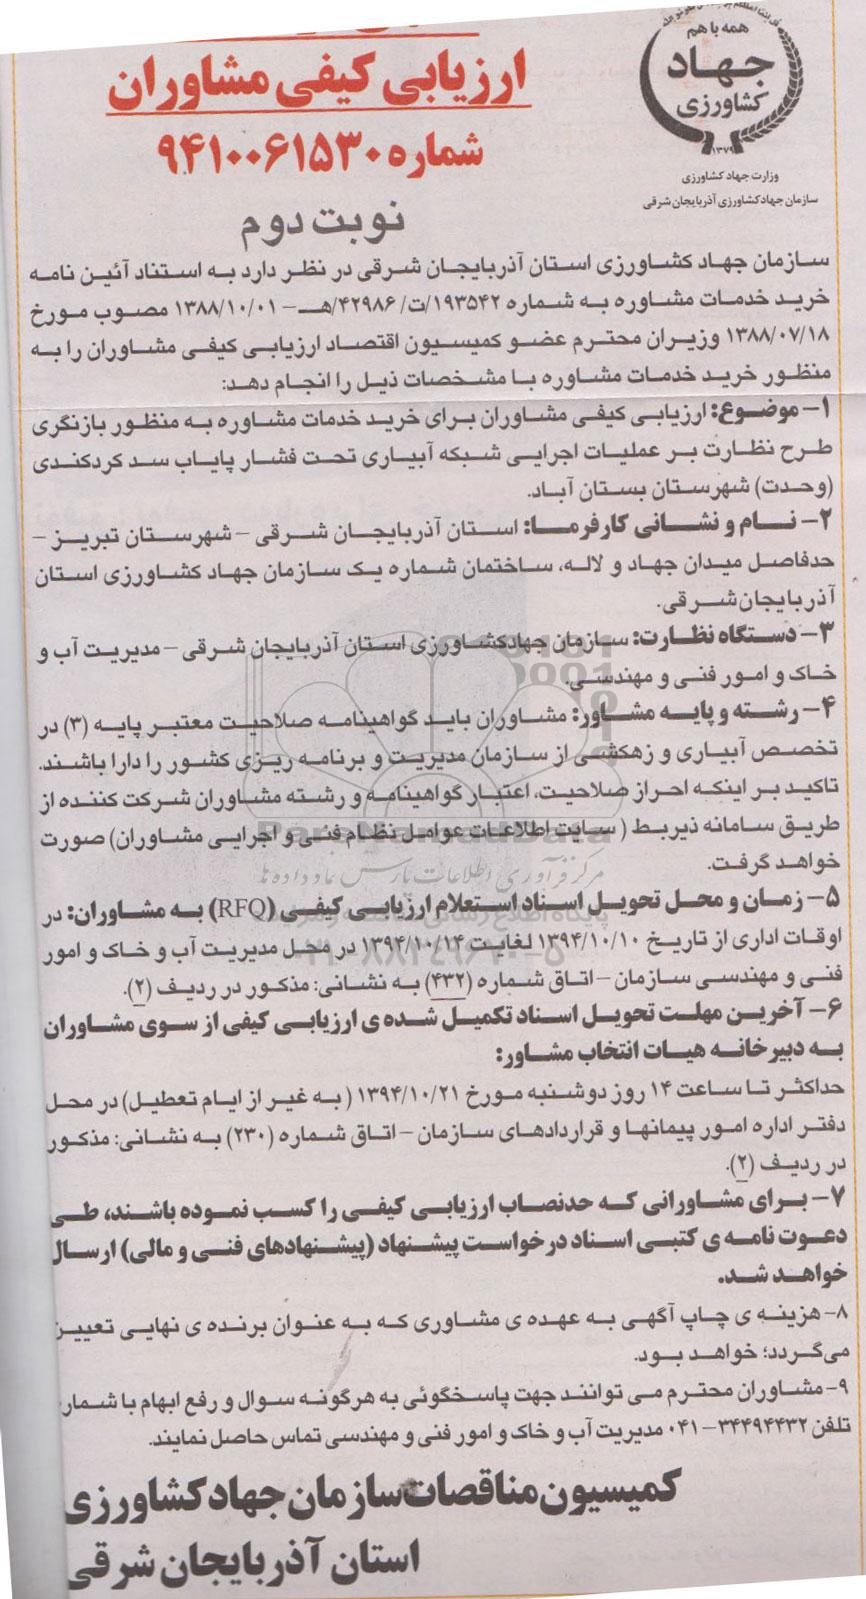 همه با هم
جهاد
کشاورزی
۱۳۷۹
وزارت جهاد کشاورزی
سازمان جهادکشاورزی آذربایجان شرقی
ارزیابی کیفی مشاوران
شماره ۹۴۱۰۰۶۱۵۳۰
نوبت دوم
سازمان جهاد کشاورزی استان آذربایجان شرقی در نظر دارد به استناد آئین نامه
خرید خدمات مشاوره به شماره ۱۹۳۵۴۲/ت/۴۲۹۸۶/هـ – ۱۳۸۸/۱۰/۰۱ مصوب مورخ
۱۳۸۸/۰۷/۱۸ وزیران محترم عضو کمیسیون اقتصاد ارزیابی کیفی مشاوران را به
منظور خرید خدمات مشاوره با مشخصات ذیل را انجام دهد:
۱- موضوع: ارزیابی کیفی مشاوران برای خرید خدمات مشاوره به منظور بازنگری
طرح نظارت بر عملیات اجرایی شبکه آبیاری تحت فشار پایاب سد کردکندی
(وحدت) شهرستان بستان آباد.
۲- نام و نشانی کارفرما: استان آذربایجان شرقی – شهرستان تبریز –
حدفاصل میدان جهاد و لاله، ساختمان شماره یک سازمان جهاد کشاورزی استان
آذربایجان شرقی.
۳- دستگاه نظارت: سازمان جهادکشاورزی استان آذربایجان شرقی – مدیریت آب و
خاک و امور فنی و مهندسی.
۴- رشته و پایه مشاور: مشاوران باید گواهینامه صلاحیت معتبر پایه (۳) در
تخصص آبیاری و زهکشی از سازمان مدیریت و برنامه ریزی کشور را دارا باشند.
تاکید بر اینکه احراز صلاحیت، اعتبار گواهینامه و رشته مشاوران شرکت کننده از
طریق سامانه ذیربط ( سایت اطلاعات عوامل نظام فنی و اجرایی مشاوران) صورت
خواهد گرفت.
۵- زمان و محل تحویل اسناد استعلام ارزیابی کیفی (RFQ) به مشاوران: در
اوقات اداری از تاریخ ۱۳۹۴/۱۰/۱۰ لغایت ۱۳۹۴/۱۰/۱۴ در محل مدیریت آب و خاک و امور
فنی و مهندسی سازمان – اتاق شماره (۴۳۲) به نشانی: مذکور در ردیف (۲).
۶- آخرین مهلت تحویل اسناد تکمیل شده ی ارزیابی کیفی از سوی مشاوران
به دبیرخانه هیات انتخاب مشاور:
حداکثر تا ساعت ۱۴ روز دوشنبه مورخ ۱۳۹۴/۱۰/۲۱ ( به غیر از ایام تعطیل) در محل
دفتر اداره امور پیمانها و قراردادهای سازمان – اتاق شماره (۲۳۰) به نشانی: مذکور
در ردیف (۲).
۷- برای مشاورانی که حدنصاب ارزیابی کیفی را کسب نموده باشند، طی
دعوت نامه ی کتبی اسناد درخواست پیشنهاد (پیشنهادهای فنی و مالی) ارسال
خواهد شد.
۸- هزینه ی چاپ آگهی به عهده ی مشاوری که به عنوان برنده ی نهایی تعیین
می گردد؛ خواهد بود.
۹- مشاوران محترم می توانند جهت پاسخگوئی به هرگونه سوال و رفع ابهام با شماره
تلفن ۳۴۴۹۴۴۳۲-۰۴۱ مدیریت آب و خاک و امور فنی و مهندسی تماس حاصل نمایند.
کمیسیون مناقصات سازمان جهاد کشاورزی
استان آذربایجان شرقی